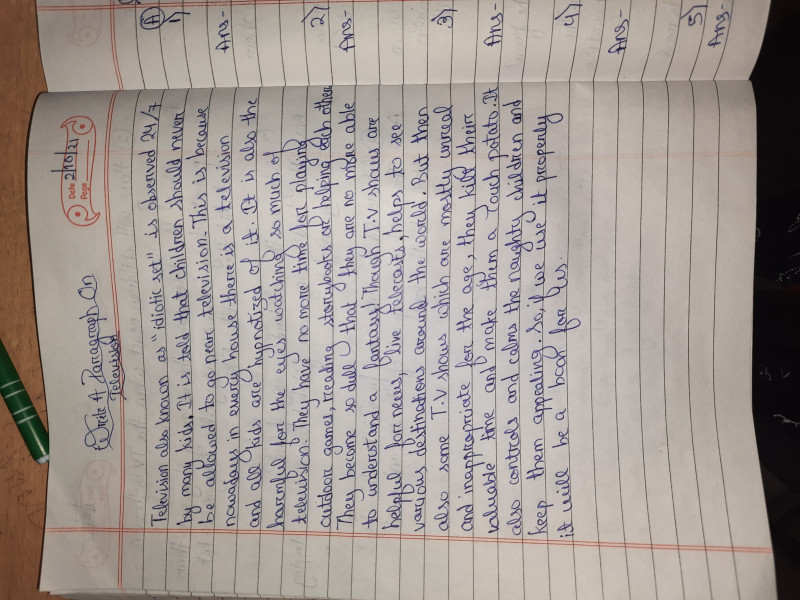 Date 2/10/21
Page
Write A Paragraph On
Television
Television also known as "idiotic set" is observed 24/7
by many kids. It is told that children should never
be allowed to go near television. This is because
nowadays in every house there is a television
and all kids are hypnotized of it. It is also the
harmful for the eyes watching so much of
television. They have no more time for playing
outdoor games, reading storybooks or helping each other
They become so dull that they are no more able
to understand a fantasy! Though T.V shows are
helpful for news, live telecasts, helps to see
various destinations around the world. But then
also some T.V shows which are mostly unreal
and inappropriate for the age, they kill their
valuable time and make them a couch potato. It
also controls and calms the naughty children and
keep them appealing. So, if we use it properly
it will be a boon for us.
A
1)
Ans-
2)
Ans-
3)
Ans-
4)
Ans-
5)
Ans-